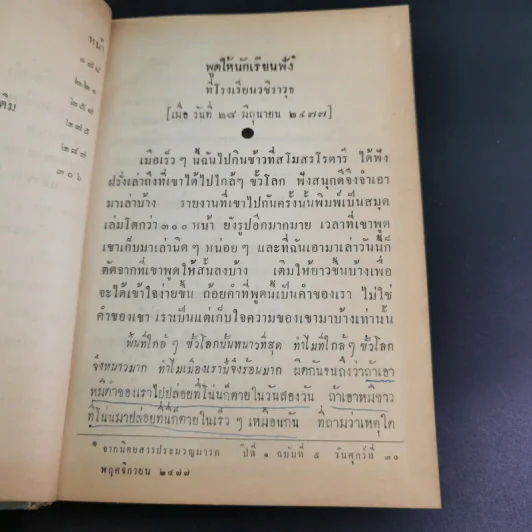 หน้า
๑๗๘
๒๒๑
๒๕๗
๒๗๕
๒๘๘
๓๐๖
พูดให้นักเรียนฟัง*
ที่โรงเรียนวชิราวุธ
[เมื่อ วันที่ ๒๘ มิถุนายน ๒๔๗๗]
เมื่อเร็ว ๆ นี้ฉันไปกินข้าวที่สโมสรโรตารี ได้ฟัง
ฝรั่งเล่าถึงที่เขาได้ไปใกล้ๆ ขั้วโลก ฟังสนุกดีจึงจำเอา
มาเล่าบ้าง รายงานที่เขาไปกันครั้งนั้นพิมพ์เป็นสมุด
เล่มโตกว่า ๓๐๐ หน้า ยังรูปอีกมากมาย เวลาที่เขาพูด
เขาเก็บมาเล่านิด ๆ หน่อย ๆ และที่ฉันเอามาเล่าวันนี้ก็
ตัดจากที่เขาพูดให้สั้นลงบ้าง เติมให้ยาวขึ้นบ้างเพื่อ
จะได้เข้าใจง่ายขึ้น ถ้อยคำที่พูดนี้เป็นคำของเรา ไม่ใช่
คำของเขา เราเป็นแต่เก็บใจความของเขามาบ้างเท่านั้น
พื้นที่ใกล้ ๆ ขั้วโลกนั้นหนาวที่สุด ทำไมที่ใกล้ ๆ ขั้วโลก
จึงหนาวมาก ทำไมเมืองเรานี้จึงร้อนมาก ผิดกันจนถึงว่าถ้าเอา
หมีดำของเราไปปล่อยที่โน่นก็ตายในวันสองวัน ถ้าเอาหมีขาว
ที่โน่นมาปล่อยที่นี่ก็ตายในเร็ว ๆ เหมือนกัน ที่ถามว่าเหตุใด
* จากนิตยสารประมวญมารค ปีที่ ๑ ฉบับที่ ๕ วันศุกร์ที่ ๓๐
พฤศจิกายน ๒๔๗๗